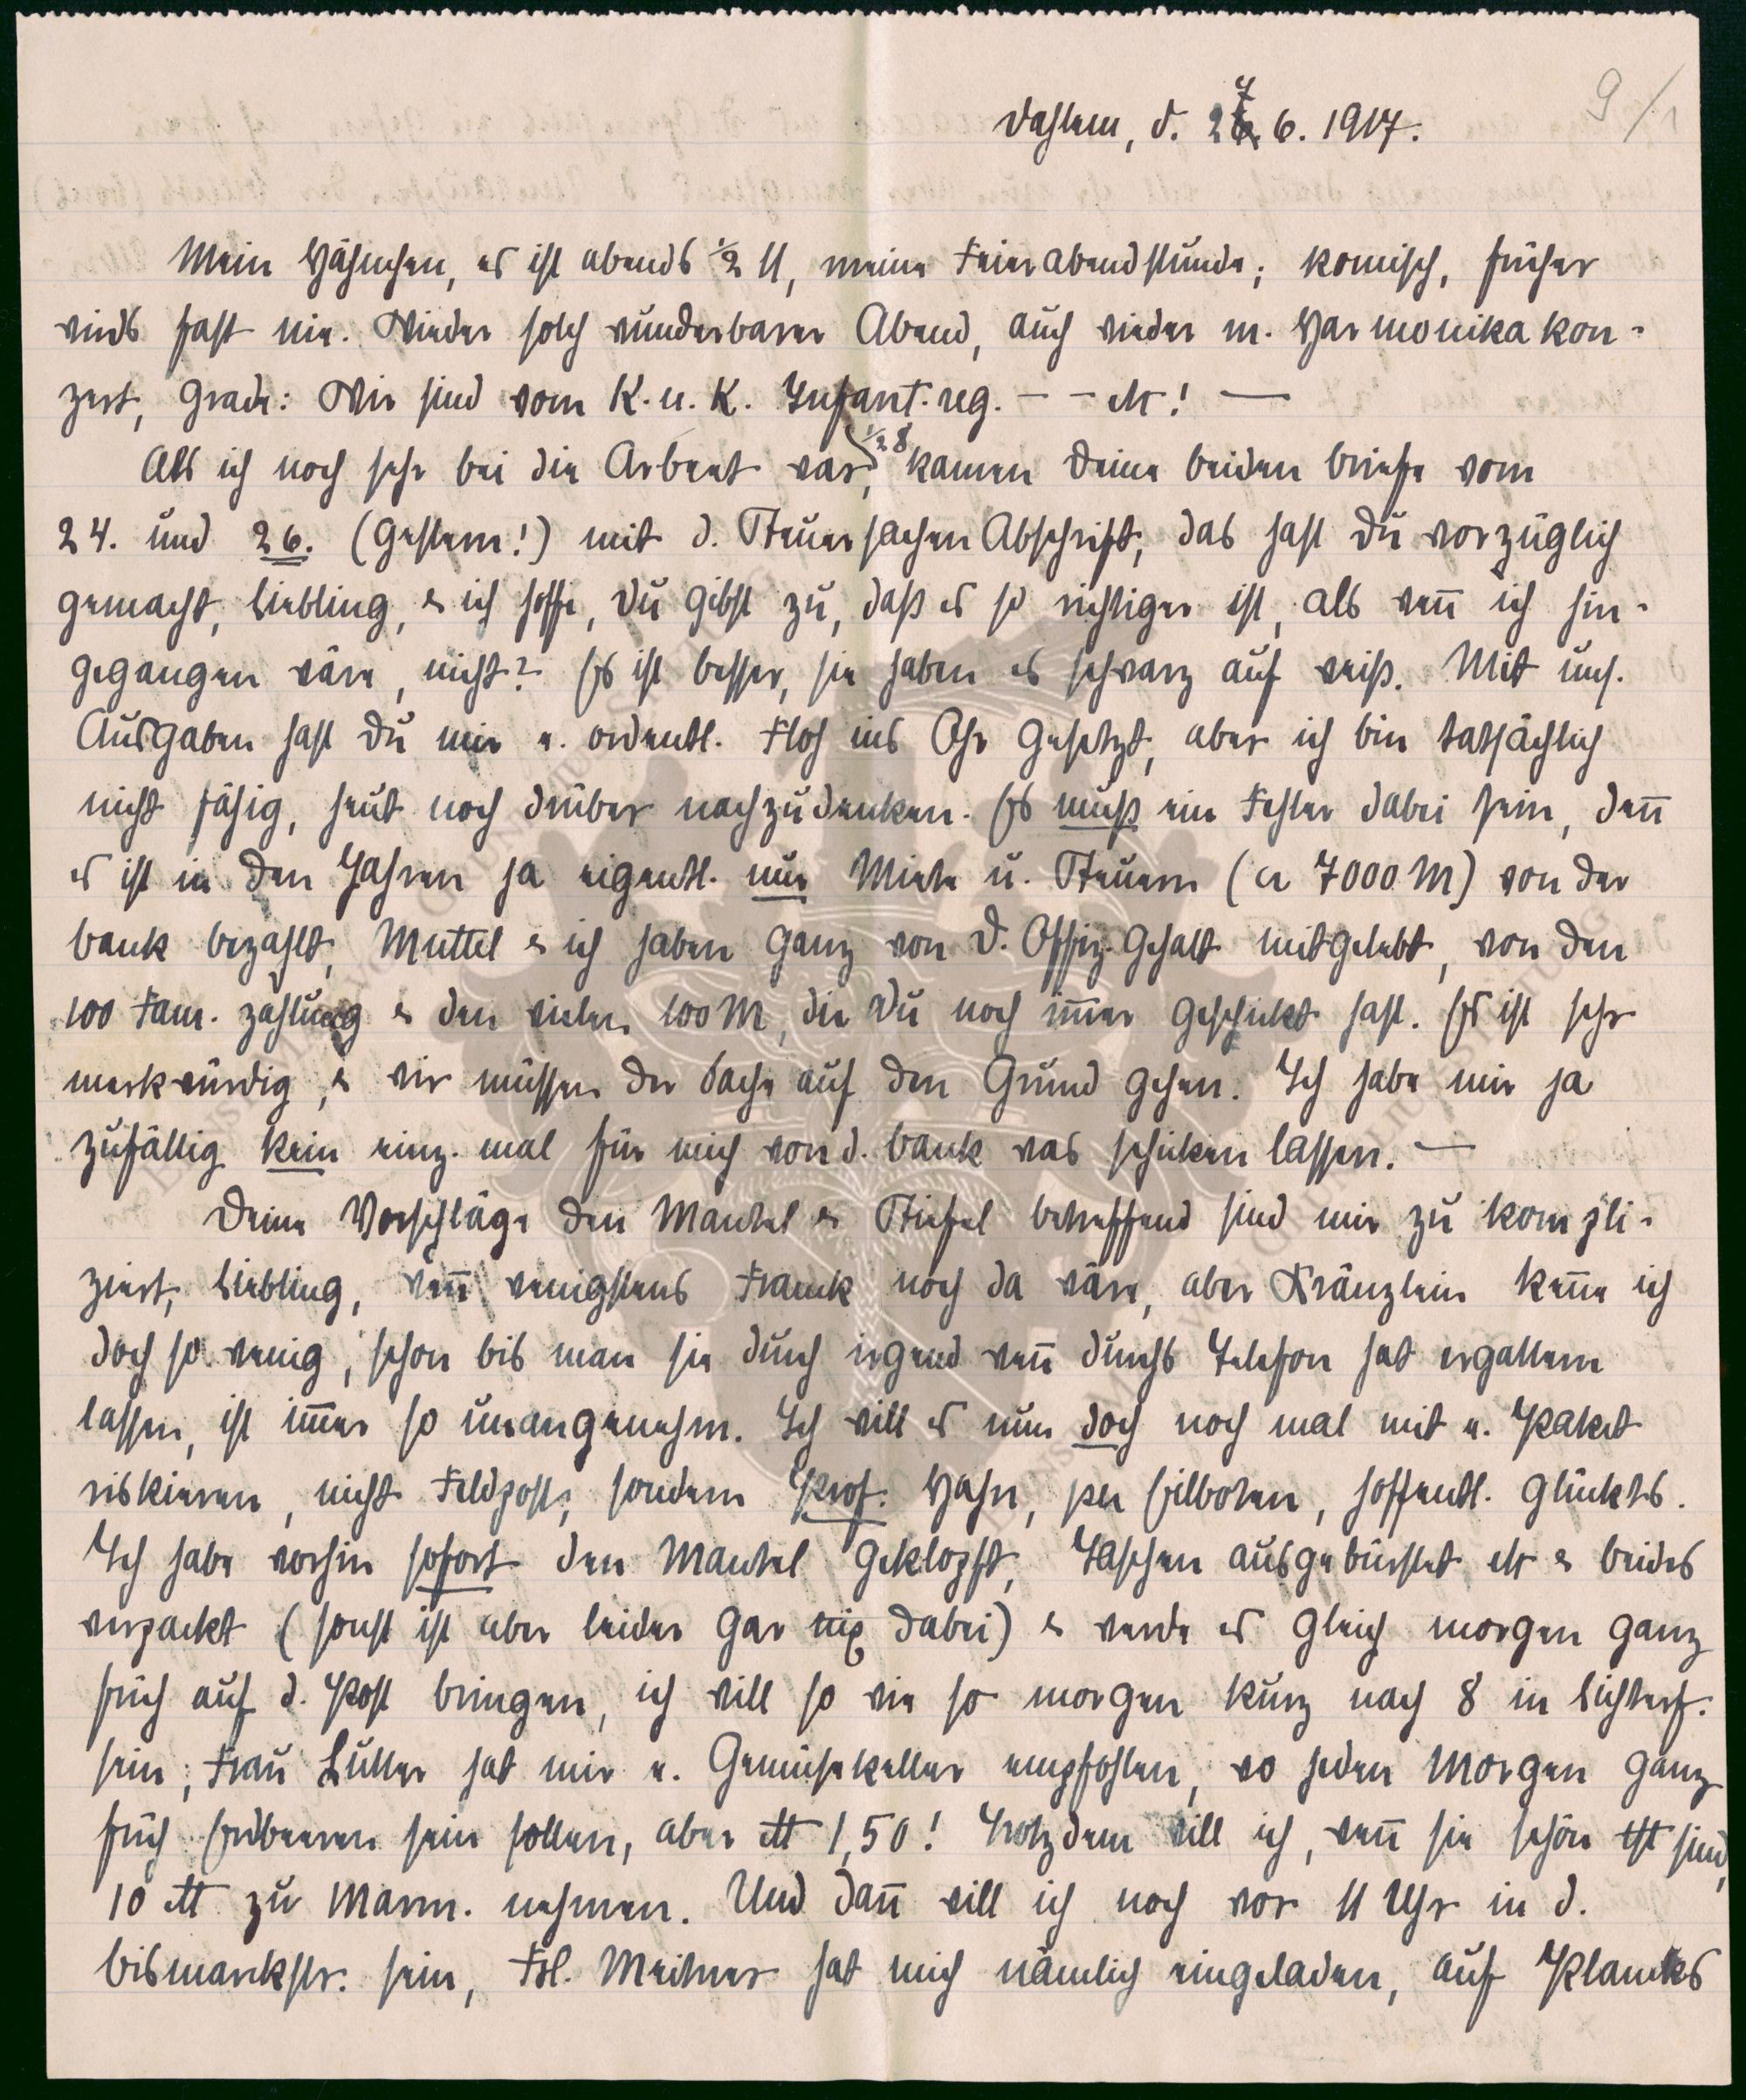 9/1
Dahlem, d. 27. 6. 1917.
Mein Hähnchen, es ist abends ½ 11, meine Feierabendstunde; komisch, früher
wirds fast nie. Wieder solch wunderbarer Abend, auch wieder m. Harmonikakon-
zert, grade: Wir sind vom K. u. K. Infant.reg. – – etc! —
Als ich noch sehr bei die Arbeet war, ½8 kamen Deine beiden Briefe vom
24. und 26. (gestern!) mit d. Steuersachen Abschrift, das hast Du vorzüglich
gemacht, Liebling, & ich hoffe, Du gibst zu, daß es so richtiger ist, als wen̄ ich hin-
gegangen wäre, nicht? Es ist besser, sie haben es schwarz auf weiß. Mit uns.
Ausgaben hast Du mir e. ordentl. Floh ins Ohr gesetzt, aber ich bin tatsächlich
nicht fähig, heut noch drüber nachzudenken. Es muß ein Fehler dabei sein, den̄
es ist in den Jahren ja eigentl. nur Miete u. Steuern (ca 7000 M) von der
Bank bezahlt, Muttel & ich haben ganz von D. Offiz.gehalt mitgelebt, von den
100 Fam. zahlung & den vielen 100 M, die Du noch im̄er geschickt hast. Es ist sehr
merkwürdig, & wir müssen der Sache auf den Grund gehen. Ich habe mir ja
zufällig kein einz. mal für mich von d. Bank was schicken lassen. —
Deine Vorschläge den Mantel & Stiefel betreffend sind mir zu kompli-
ziert, Liebling, wen̄ wenigstens Franck noch da wäre, aber Kränzlein ken̄e ich
doch so wenig, schon bis man sie durch irgend wen̄ durchs Telefon hat ergattern
lassen, ist im̄er so unangenehm. Ich will es nun doch noch mal mit e. Paket
riskieren, nicht Feldpost, sondern Prof. Hahn, per Eilboten, hoffentl. glückts.
Ich habe vorhin sofort den Mantel geklopft, Taschen ausgebürstet etc & beides
verpackt (sonst ist aber leider gar nix dabei) & werde es gleich morgen ganz
früh auf d. Post bringen, ich will so wie so morgen kurz nach 8 in Lichterf.
sein; Frau Luller hat mir e. Gemüsekeller empfohlen, wo jeden Morgen ganz
früh Erdbeeren sein sollen, aber ℔ 1,50! Trotzdem will ich, wen̄ sie schön ist sind,
10 ℔ zu Marm. nehmen. Und dan̄ will ich noch vor 11 Uhr in d.
Bismarckstr. sein, Frl. Meitner hat mich nämlich eingeladen, auf Plancks